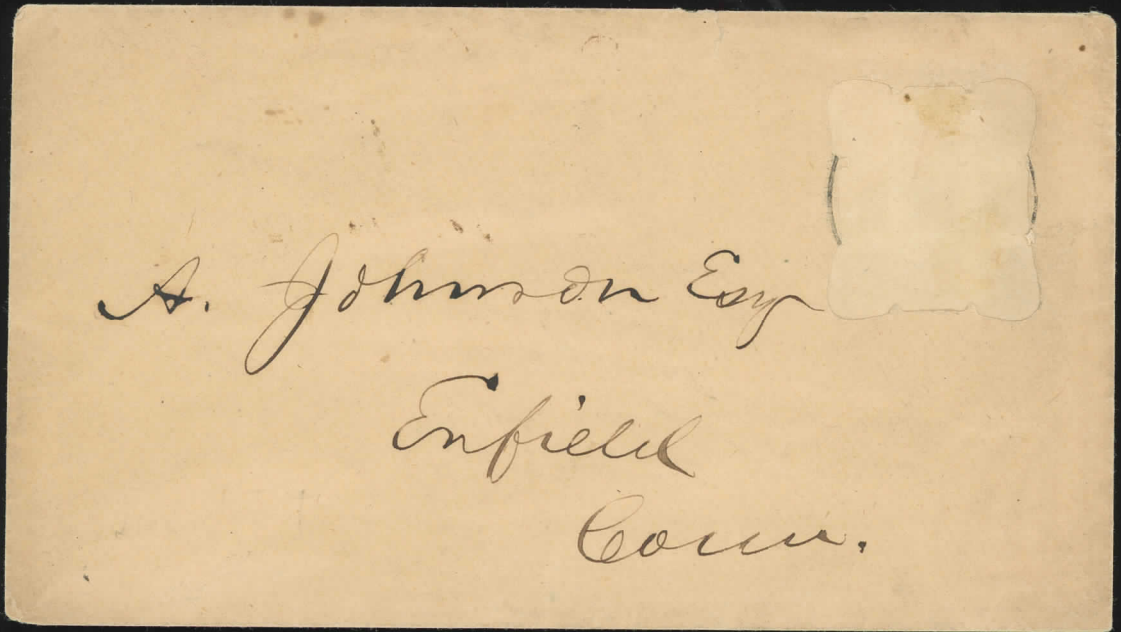 A. Johnson Esq
Enfield
Conn.